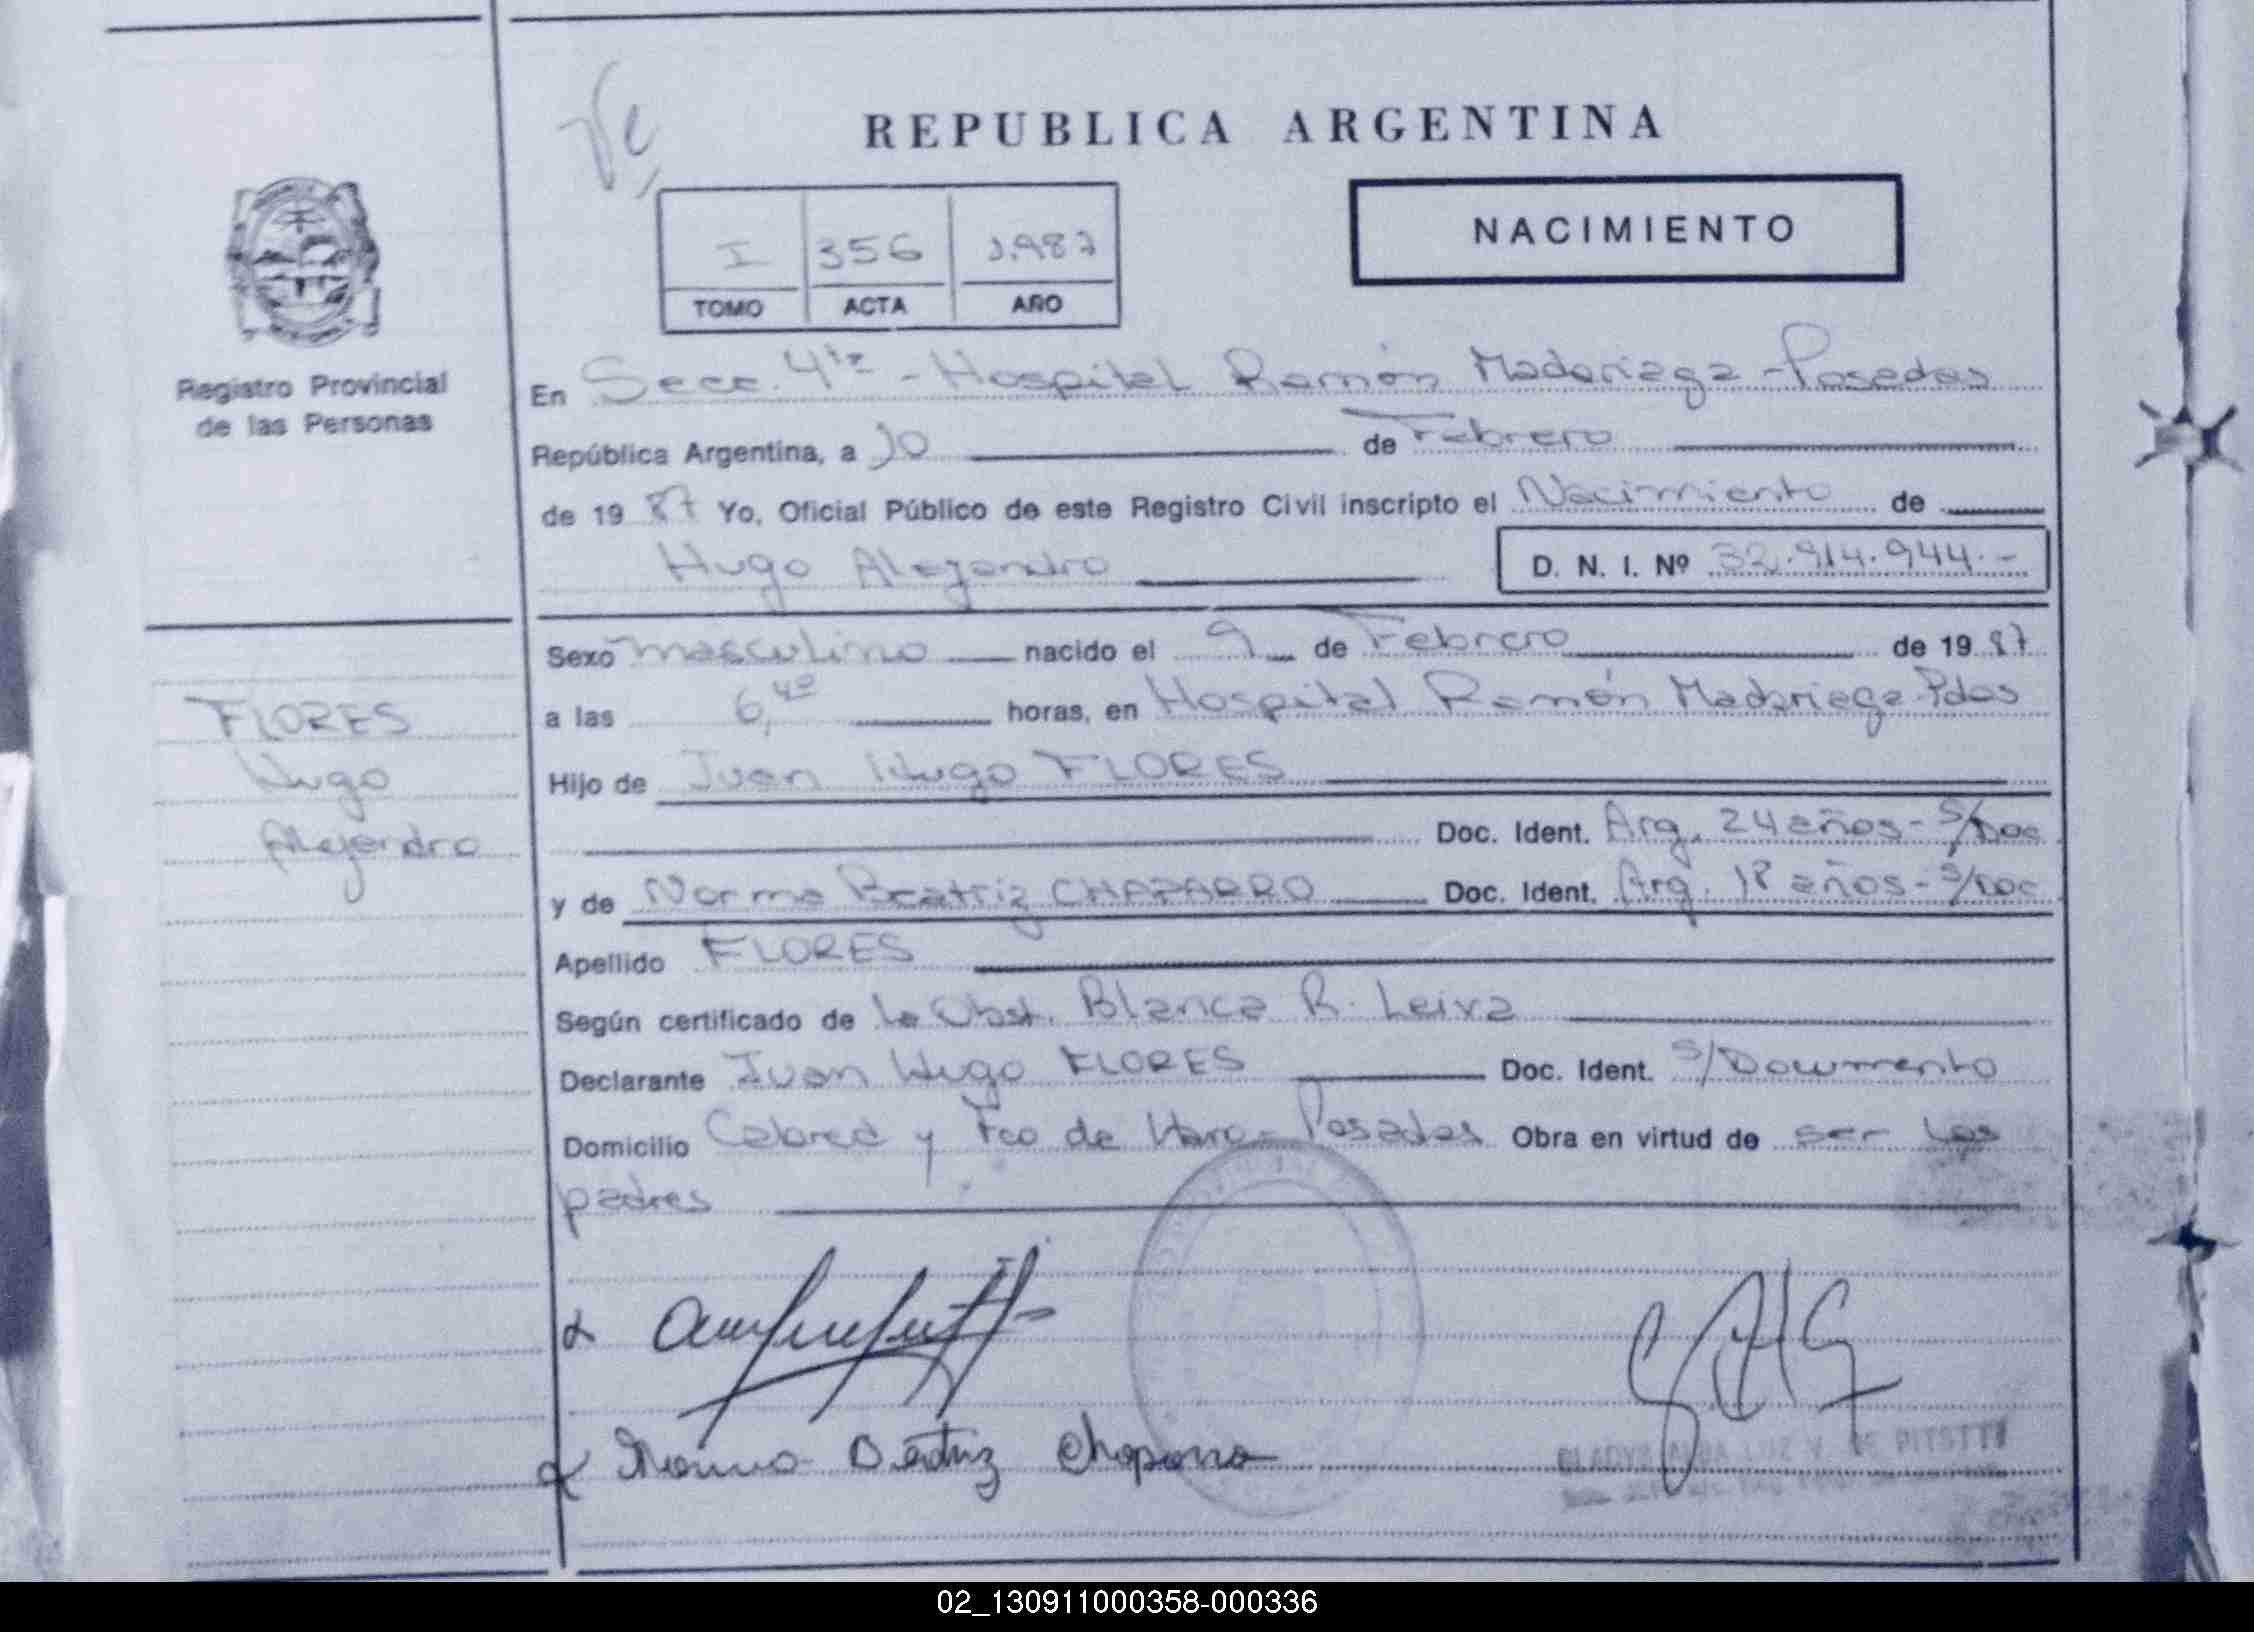 REPUBLICA ARGENTINA
NACIMIENTO
I 356 1.987
TOMO ACTA AÑO
Registro Provincial
de las Personas
En Secc. 4ta - Hospital Ramón Madariaga - Posadas
República Argentina, a 10 de Febrero
de 19 87 Yo, Oficial Público de este Registro Civil inscripto el Nacimiento de
Hugo Alejandro D. N. I. Nº 32.914.944.-
Sexo masculino nacido el 9 de Febrero de 19 87
a las 6,40 horas, en Hospital Ramón Madariaga-Pdas
Hijo de Juan Hugo FLORES
Doc. Ident. Arg. 24 años - S/Doc
y de Norma Beatriz CHAPARRO Doc. Ident. Arg. 18 años - S/Doc
Apellido FLORES
Según certificado de la Obst. Blanca R. Leiva
Declarante Juan Hugo FLORES Doc. Ident. S/Documento
Domicilio Cabred y Fco de Haro - Posadas Obra en virtud de ser los
padres
FLORES
Hugo
Alejandro
Norma Beatriz Chaparro
GLADYS ALBA LUZ V. DE
02_130911000358-000336